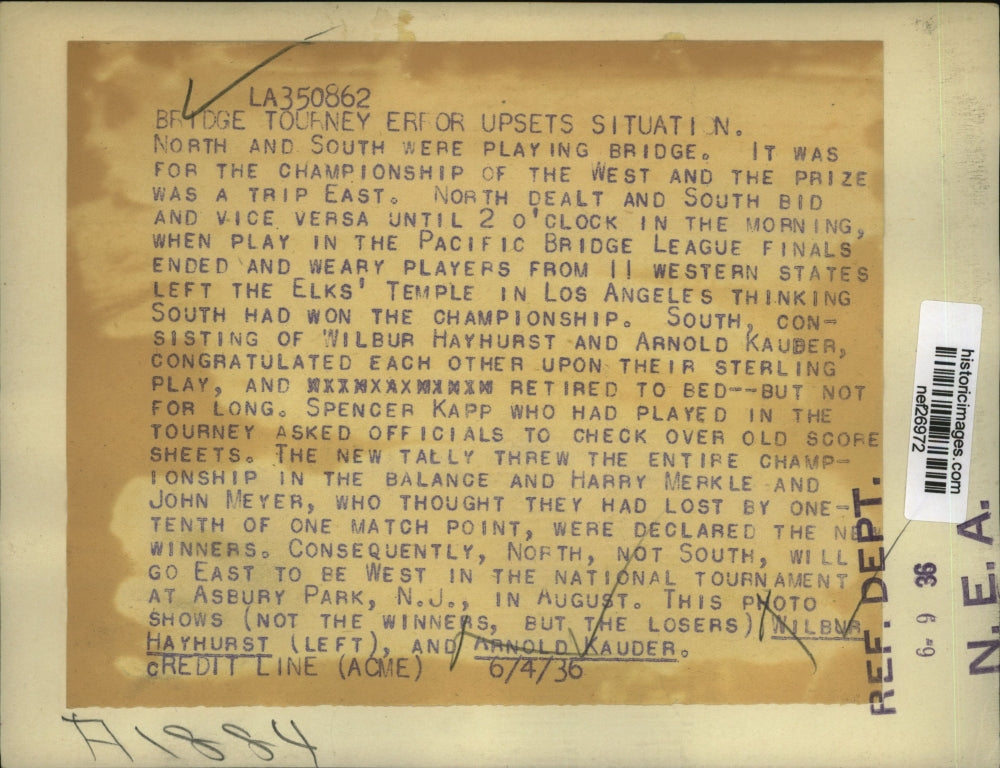 LA350862
BRIDGE TOURNEY ERROR UPSETS SITUATION.
NORTH AND SOUTH WERE PLAYING BRIDGE. IT WAS
FOR THE CHAMPIONSHIP OF THE WEST AND THE PRIZE
WAS A TRIP EAST. NORTH DEALT AND SOUTH BID
AND VICE VERSA UNTIL 2 O'CLOCK IN THE MORNING,
WHEN PLAY IN THE PACIFIC BRIDGE LEAGUE FINALS
ENDED AND WEARY PLAYERS FROM 11 WESTERN STATES
LEFT THE ELKS' TEMPLE IN LOS ANGELES THINKING
SOUTH HAD WON THE CHAMPIONSHIP. SOUTH, CON-
SISTING OF WILBUR HAYHURST AND ARNOLD KAUDER,
CONGRATULATED EACH OTHER UPON THEIR STERLING
PLAY, AND RETIRED TO BED--BUT NOT
FOR LONG. SPENCER KAPP WHO HAD PLAYED IN THE
TOURNEY ASKED OFFICIALS TO CHECK OVER OLD SCORE
SHEETS. THE NEW TALLY THREW THE ENTIRE CHAMP-
IONSHIP IN THE BALANCE AND HARRY MERKLE AND
JOHN MEYER, WHO THOUGHT THEY HAD LOST BY ONE-
TENTH OF ONE MATCH POINT, WERE DECLARED THE NEW
WINNERS. CONSEQUENTLY, NORTH, NOT SOUTH, WILL
GO EAST TO BE WEST IN THE NATIONAL TOURNAMENT
AT ASBURY PARK, N.J., IN AUGUST. THIS PHOTO
SHOWS (NOT THE WINNERS, BUT THE LOSERS) WILBUR
HAYHURST (LEFT), AND ARNOLD KAUDER.
CREDIT LINE (ACME) 6/4/36
A1884
historicimages.com
nef26972
REF. DEPT.
6-9 36
N.E.A.